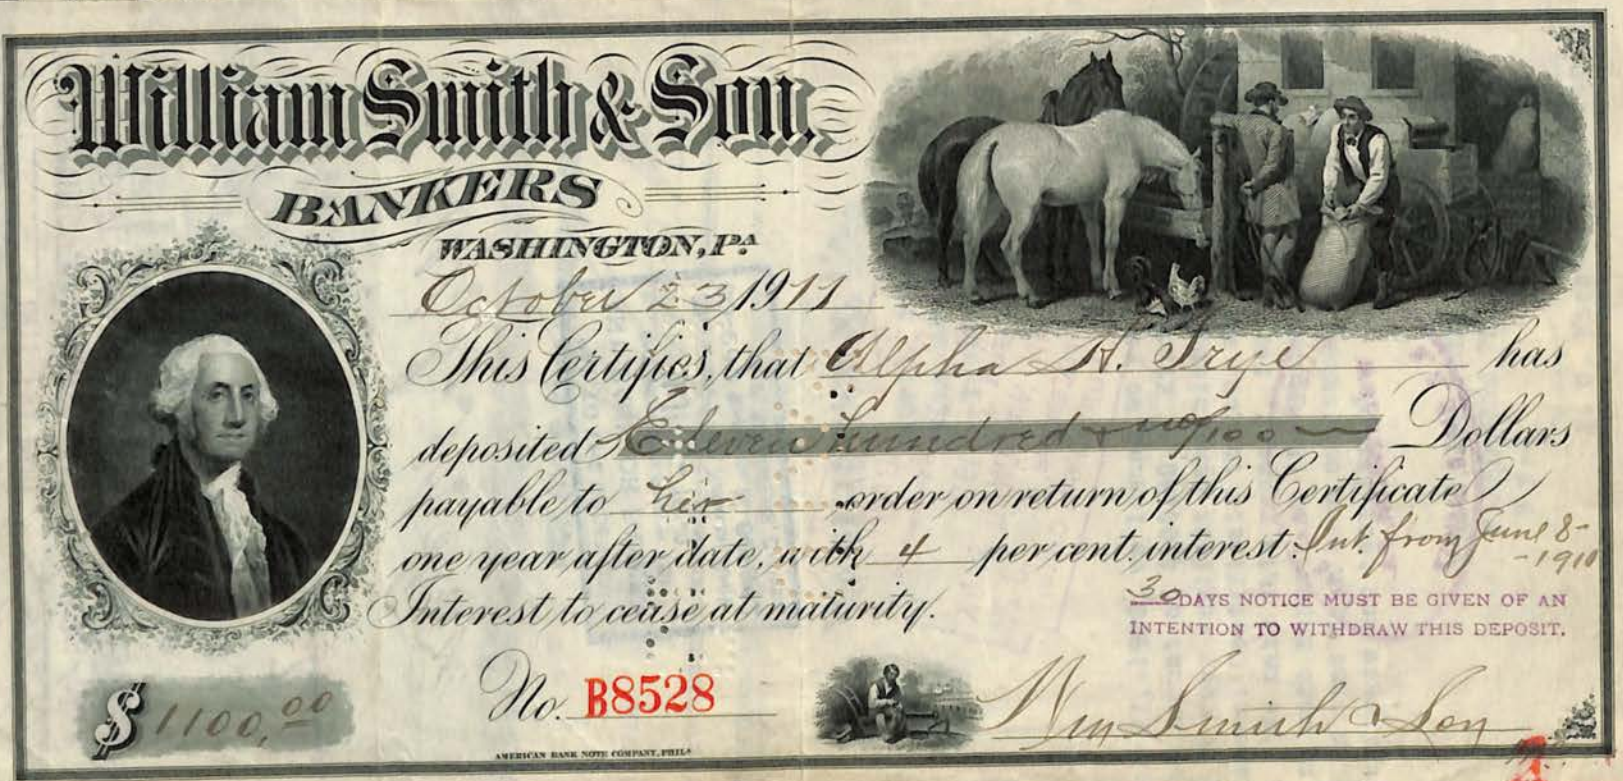 William Smith & Son.
BANKERS
WASHINGTON, PA
October 23, 1911
This Certifies, that Alpha H. Frye has
deposited Eleven hundred & no/100 Dollars
payable to her order on return of this Certificate
one year after date, with 4 per cent. interest. Int. from June 8-
-1910
Interest to cease at maturity.
30 DAYS NOTICE MUST BE GIVEN OF AN
INTENTION TO WITHDRAW THIS DEPOSIT.
$1100.00
No. B8528
Wm Smith & Son
AMERICAN BANK NOTE COMPANY, PHILA